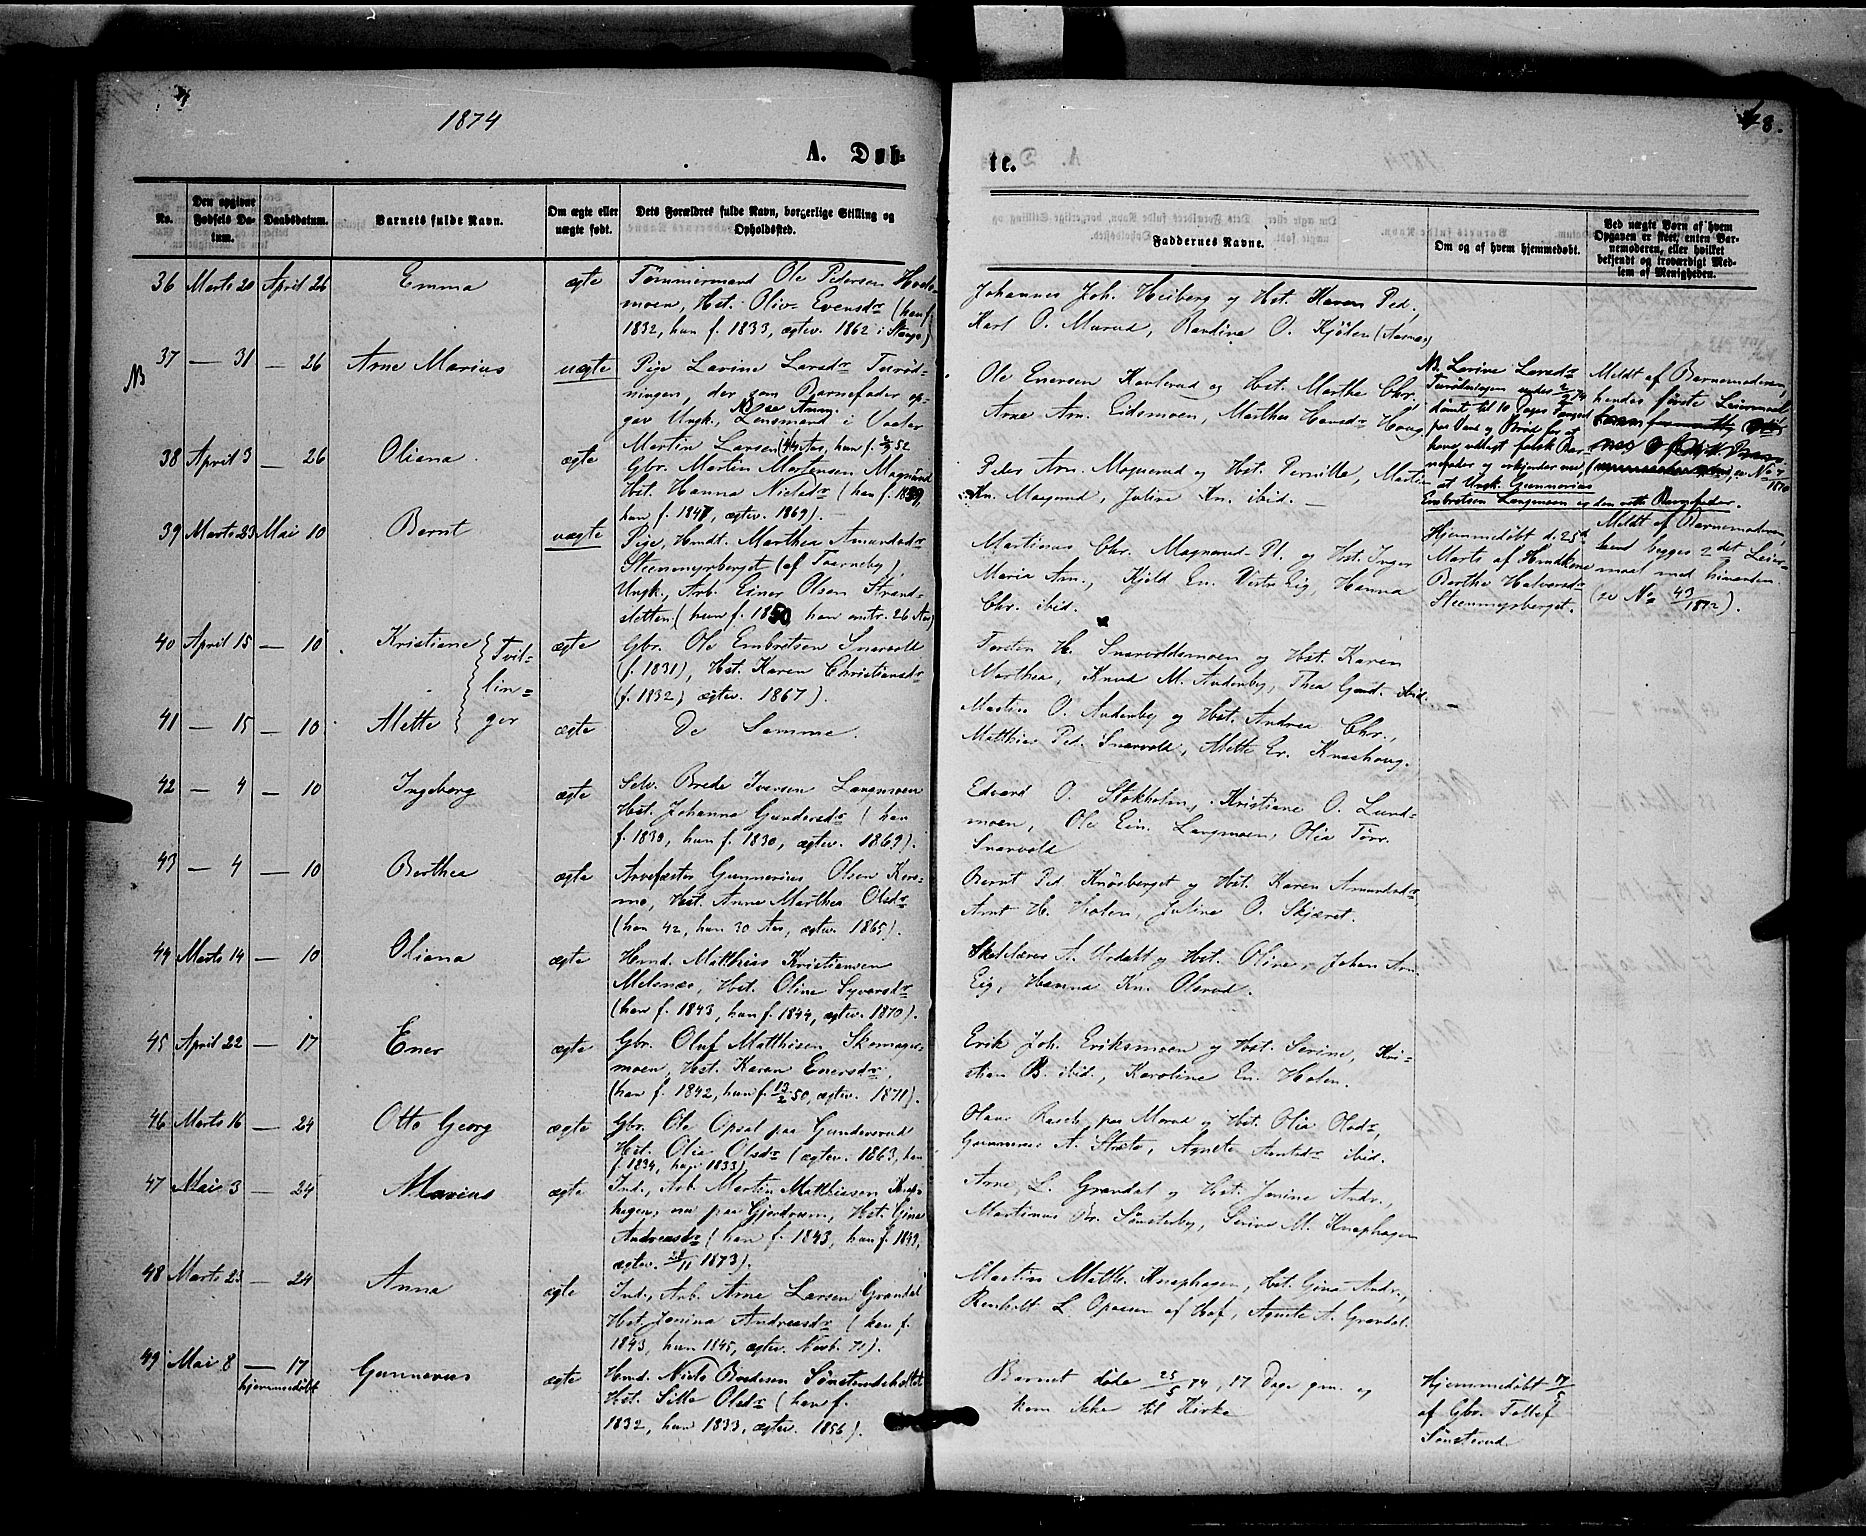 1874
48.
A. Døb-
te.
No.
Den opgivne Fødsels Da-
tum.
Daabsdatum.
Barnets fulde Navn.
Om ægte eller
uægte født.
Dets Forældres fulde Navn, borgerlige Stilling og
Opholdssted.
Faddernes Navne.
Om og af hvem hjemmedøbt.
Ved uægte Børn af hvem
Opgaven er skeet, enten Bar-
nemoderen, eller hvilket
bekjendt og troværdigt Med-
lem af Menigheden.
36 Marts 20 April 26 Emma ægte
Tømmermand Ole Pedersen
moen, Hst. Oliv. Evensdr (han f.
1832, hun f. 1833, ægtev. 1862 i Stange)
Johannes Joh. Heiberg og Hst. Karen Ped.,
Karl O. Murud, Randine O. Kjølen (Aasnæs)
NB
37 — 31 — 26 Arne Marius uægte
Pige Lavine Larsdr
ningen, der som Barnefader op-
gav Ungk., Lensmand i Vaaler
Martin Larsen
Ole Enersen Kavlerud og Hst. Marthe Chr.,
Arne Arn. Eidsmoen, Marthea Hansdr Haug
NB. Lavine Larsdr
dømt til 10 Dages Fængsel
paa Vand og Brød for at
have udlagt falsk Bar-
nefader og erkjender nu
at Ungk. Gunnerius
Embretsen Langmoen er den rette Barnefader.
Meldt af Barnemoderen,
hendes første Leiermaal
38 April 3 — 26 Oliana ægte
Gbr. Martin Mortensen Magnerud
Hst. Hanna Nielsdr (han f. 1839,
hun f. 1847, ægtev. 1869).
Peder Arn. Magnerud og Hst. Pernille, Martin
Kn. Magnerud, Juline Kn. ibid. —
39 Marts 23 Mai 10 Bernt uægte
Pige, Hmdt. Marthea Amundsdr
Steenmyrberget (af Taarneby),
Ungk., Arb. Einer Olsen Strand-
sletten (hun f. 1850, han omtr. 26 Aar)
Martinus Chr. Magnerud Pl. og Hst. Inger
Maria Arn., Kjeld En. Vestre Eig, Hanna
Chr. ibid.
Hjemmedøbt d. 25de
Marts af Hmdkone
Berthe Halvorsdr
Steenmyrberget.
Meldt af Barnemoderen,
samt begges 2det Leier-
maal med hinanden
(se No 43/1872).
40 April 15 — 10 Kristiane ægte
Tvil-
lin-
ger
Gbr. Ole Embretsen Snarvold
(f. 1831), Hst. Karen Christiansdr
(f. 1832) ægtev. 1867).
Torsten H. Snarvoldsmoen og Hst. Karen
Marthea, Knud M. Audenby, Thea Gund. ibid.
41 — 15 — 10 Mette ægte
De Samme.
Martin O. Audenby og Hst. Andrea Chr.,
Matthias Ped. Snarvold, Mette Er. Knashaug.
42 — 4 — 10 Ingeborg ægte
Selv. Brede Iversen Langmoen
Hst. Johanna Gundersdr (han
f. 1839, hun f. 1830, ægtev. 1869).
Edvard O. Stokholm, Kristiane O. Lund-
moen, Ole Ein. Langmoen, Olia Torr.
Snarvold
43 — 4 — 10 Berthea ægte
Arvefæster Gunnerius Olsen Kors-
mo, Hst. Anne Marthea Olsdr
(han 42, hun 30 Aar, ægtev. 1865).
Bernt Ped. Knøsberget og Hst. Karen Amundsdr,
Arnt H. Holen, Juline O. Skjæret.
44 Marts 14 — 10 Oliana ægte
Hmd. Matthias Kristiansen
Melsnæs, Hst. Oline Syversdr
(han f. 1843, hun f. 1844, ægtev. 1870).
Skolelærer A. Urdalt og Hst. Oline, Johan Arn.
Eig, Hanna Kn. Olsrud.
45 April 22 — 17 Ener ægte
Gbr. Oluf Matthisen Skomager-
moen, Hst. Karen Enersdr,
(han f. 1842, hun f. 13/2 50, ægtev. 1871).
Erik Joh. Eriksmoen og Hst. Serine, Kri-
stian B. ibid., Karoline En. Holen.
46 Marts 16 — 24 Otto Georg ægte
Gbr. Ole Opsal paa Gundersrud
Hst. Olia Olsdr (ægtev. 1863, han
f. 1834, hun 1833)
Olaus Rasch paa Morud og Hst. Olia Olsdr,
Gunnerius A. Stræte, Agnete Arntsdr ibid.
47 Mai 3 — 24 Marius ægte
Ind., Arb. Martin Matthiasen Knap-
hagen, nu paa Gjerdrum, Hst. Gina
Andreasdr (han f. 1843, hun f. 1849,
ægtev. 1873).
Arne L. Grandal og Hst. Janine Andr.,
Martinus Br. Sønsterby, Serine M. Knaphagen
48 Marts 23 — 24 Anna ægte
Ind., Arb. Arne Larsen Grandal
Hst. Janina Andreasdr (han f.
1843, hun 1845, ægtev. Novb. 71).
Martin Matth. Knaphagen, Hst. Gina Andr.,
Renholt L. Opaasen af Hof, Agnete A. Grandal.
49 Mai 8 — 17 Gunnerus ægte
hjemmedøbt
Hmd. Niels Bredesen Sønsterudsholtet
Hst. Sille Olsdr (han f.
1832, hun 1833, ægtev. 1856).
Barnet døde 25/5 74, 17 Dage gm. og
kom ikke til Kirke
Hjemmedøbt 17/5
af Gbr. Tollef
Sønsterud.